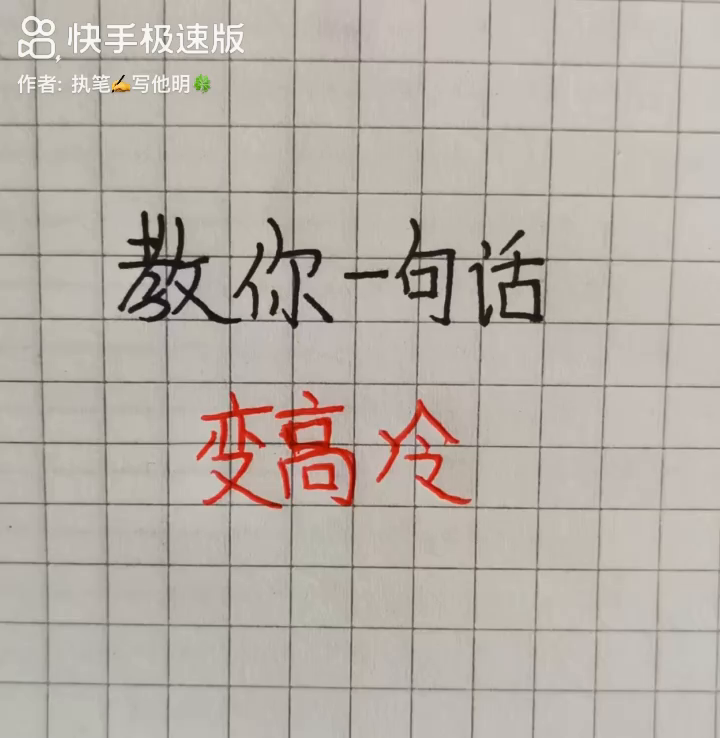 快手极速版
作者: 执笔✍️写他明🍀
教你一句话
变高冷